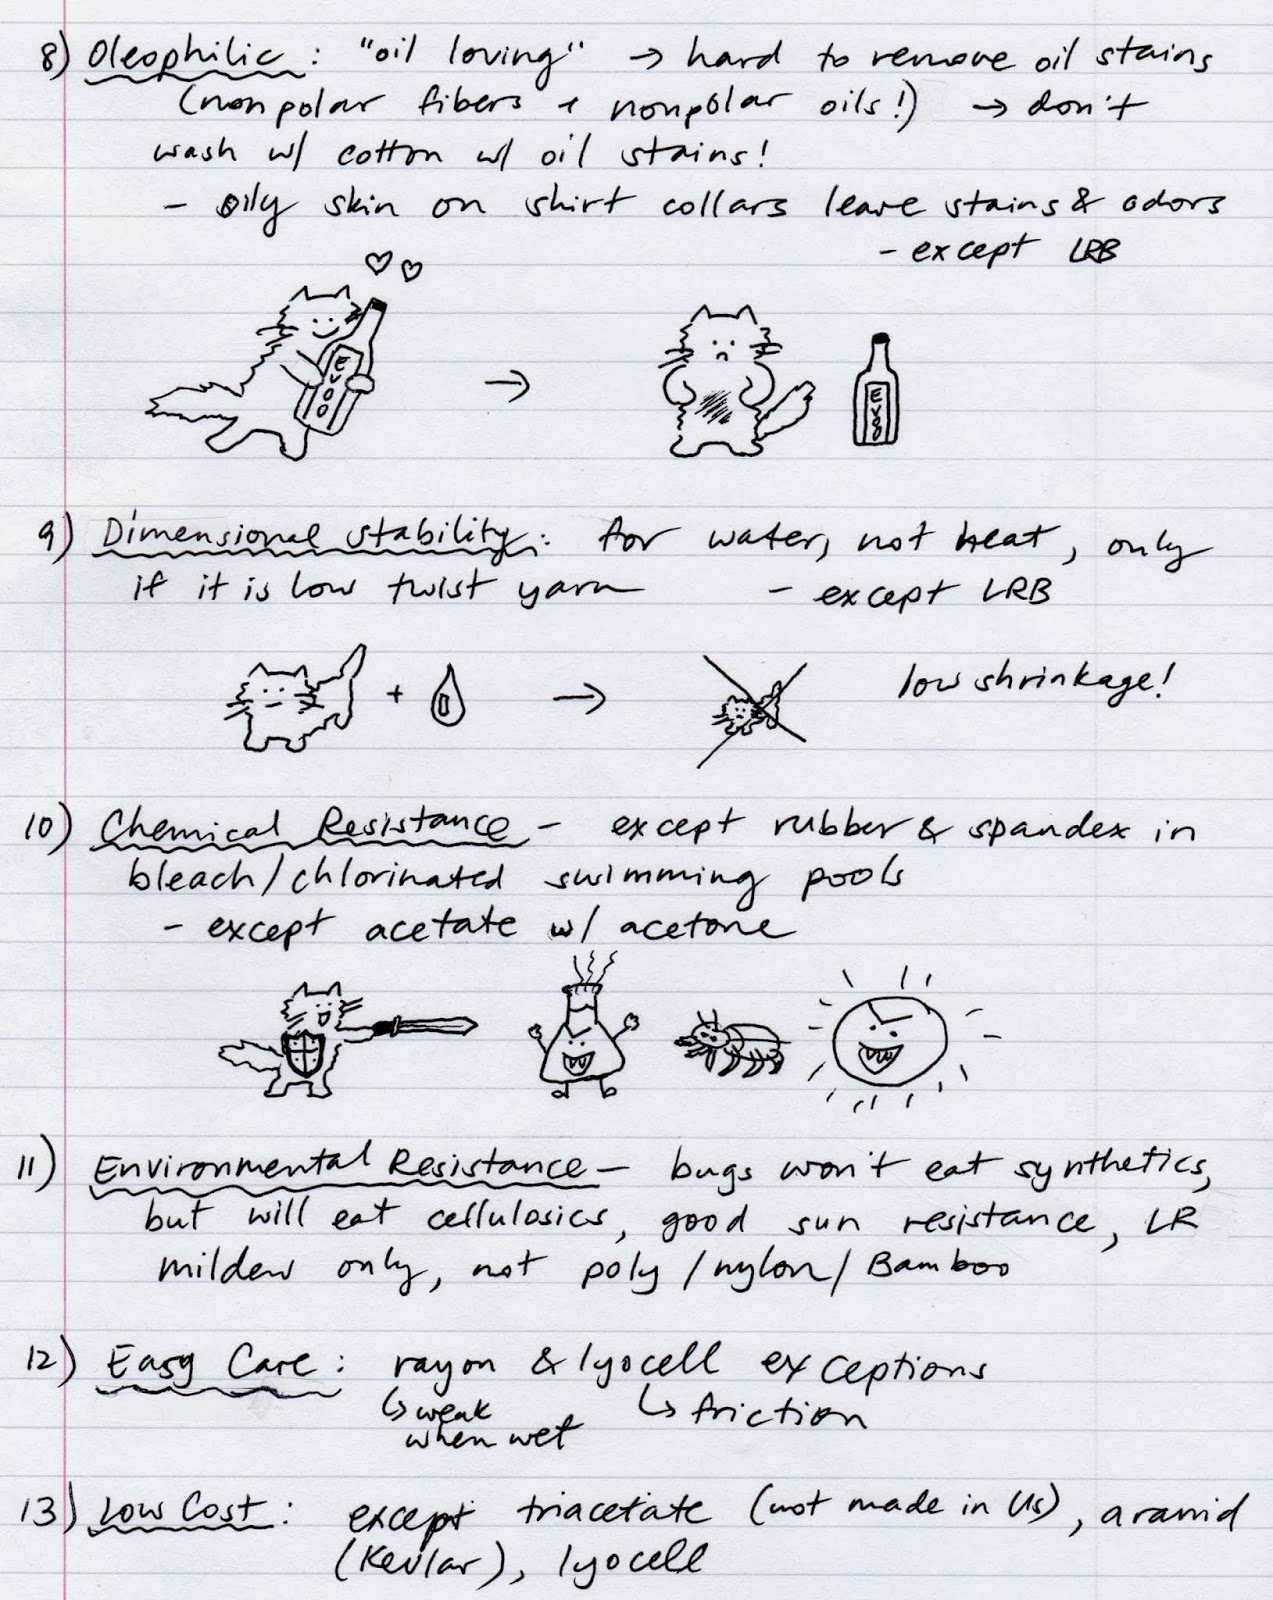 8) Oleophilic : "oil loving" → hard to remove oil stains
(nonpolar fibers + nonpolar oils!) → don't
wash w/ cotton w/ oil stains!
- oily skin on shirt collars leave stains & odors
- except LRB
EVOO
→
EVOO
9) Dimensional stability: for water, not heat, only
if it is low twist yarn - except LRB
+ → low shrinkage!
10) Chemical Resistance - except rubber & spandex in
bleach/chlorinated swimming pools
- except acetate w/ acetone
11) Environmental Resistance - bugs won't eat synthetics,
but will eat cellulosics, good sun resistance, LR
mildew only, not poly/nylon/Bamboo
12) Easy Care : rayon & lyocell exceptions
↳ weak ↳ friction
when wet
13) Low Cost : except triacetate (not made in US), aramid
(Kevlar), lyocell